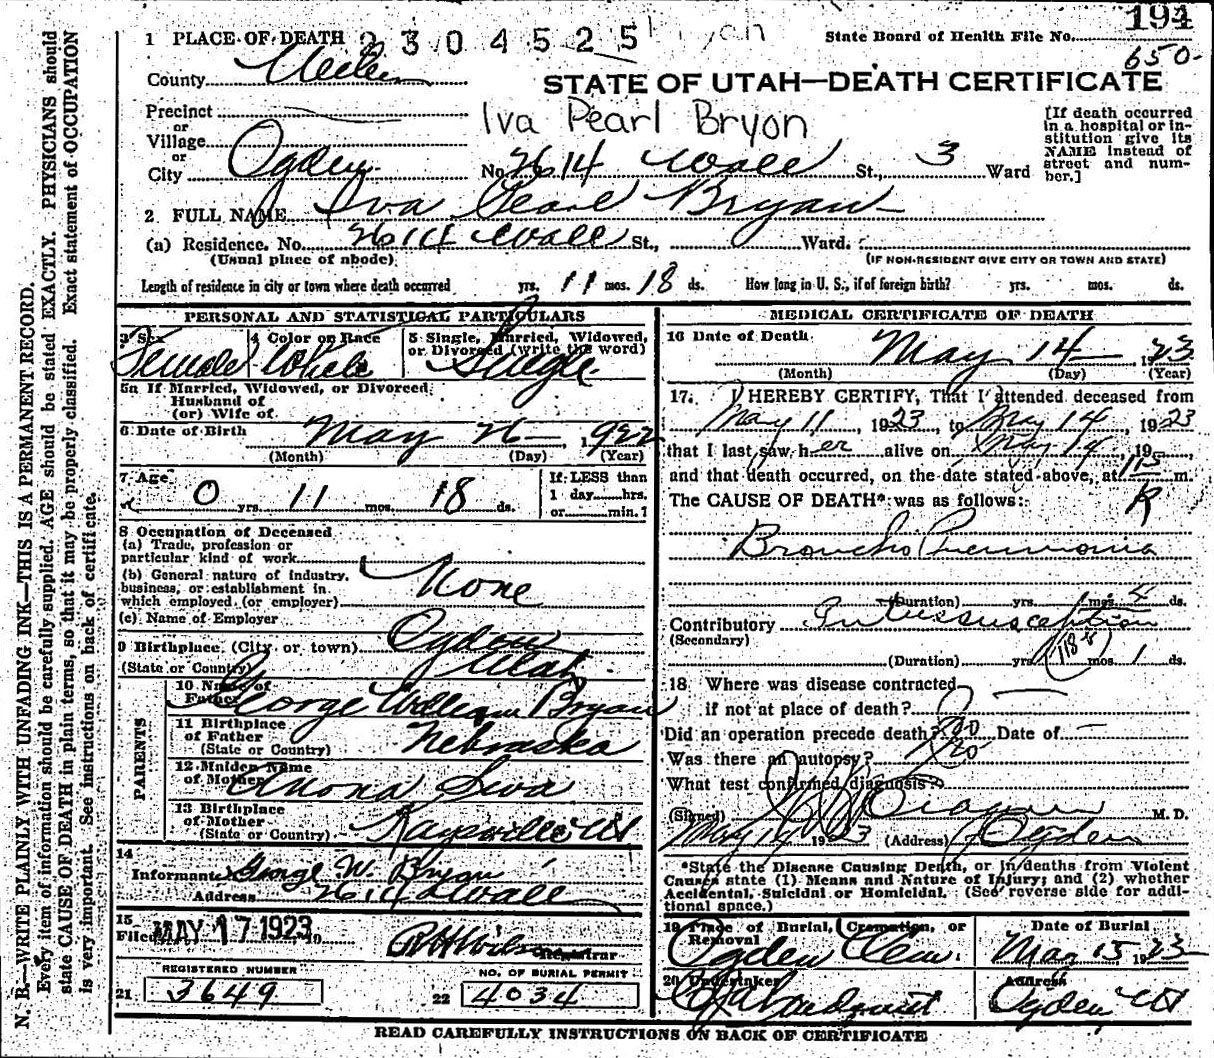 194
1 PLACE OF DEATH 2304525 State Board of Health File No.
650-
County Weber STATE OF UTAH—DEATH CERTIFICATE
Precinct
or
Village Iva Pearl Bryon
or
City Ogden No. 2614 Wall St., 3 Ward
[If death occurred in a hospital or institution give its NAME instead of street and number.]
2. FULL NAME Iva Pearl Bryan
(a) Residence. No. 2614 Wall St., Ward.
(Usual place of abode) (IF NON-RESIDENT GIVE CITY OR TOWN AND STATE)
Length of residence in city or town where death occurred yrs. 11 mos. 18 ds. How long in U. S., if of foreign birth? yrs. mos. ds.
PERSONAL AND STATISTICAL PARTICULARS
3 Sex Female
4 Color or Race White
5 Single, Married, Widowed, or Divorced (write the word) Single
5a If Married, Widowed, or Divorced
Husband of
(or) Wife of
6 Date of Birth May 26 1922
(Month) (Day) (Year)
7 Age 0 yrs. 11 mos. 18 ds.
If LESS than
1 day hrs.
or min.?
8 Occupation of Deceased
(a) Trade, profession or
particular kind of work
(b) General nature of industry,
business, or establishment in
which employed (or employer) None
(c) Name of Employer
9 Birthplace (City or town) Ogden
(State or Country) Utah
PARENTS
10 Name of
Father George William Bryan
11 Birthplace
of Father
(State or Country) Nebraska
12 Maiden Name
of Mother
13 Birthplace
of Mother
(State or Country) Kaysville Ut
14
Informant George W. Bryan
Address 2614 Wall
15
Filed MAY 17 1923 Registrar
REGISTERED NUMBER
21 3649
NO. OF BURIAL PERMIT
22 4034
MEDICAL CERTIFICATE OF DEATH
16 Date of Death May 14 1923
(Month) (Day) (Year)
17. I HEREBY CERTIFY, That I attended deceased from
May 11, 1923, to May 14, 1923
that I last saw her alive on May 14, 19
and that death occurred, on the date stated above, at m.
The CAUSE OF DEATH* was as follows:
Broncho Pneumonia
(Duration) yrs. mos. 4 ds.
Contributory Intussusception
(Secondary)
(Duration) yrs. mos. 1 ds.
18 Where was disease contracted
if not at place of death?
Did an operation precede death? No Date of —
Was there an autopsy? No
What test confirmed diagnosis?
(Signed) M. D.
May 14 1923 (Address) Ogden
*State the Disease Causing Death, or in deaths from Violent
Causes state (1) Means and Nature of Injury; and (2) whether
Accidental, Suicidal or Homicidal. (See reverse side for addi-
tional space.)
19 Place of Burial, Cremation, or
Removal
Ogden Cem.
Date of Burial
May 15 1923
20 Undertaker
Address
Ogden Ut
READ CAREFULLY INSTRUCTIONS ON BACK OF CERTIFICATE
N. B.—WRITE PLAINLY WITH UNFADING INK—THIS IS A PERMANENT RECORD.
Every item of information should be carefully supplied. AGE should be stated EXACTLY. PHYSICIANS should
state CAUSE OF DEATH in plain terms, so that it may be properly classified. Exact statement of OCCUPATION
is very important. See instructions on back of certificate.